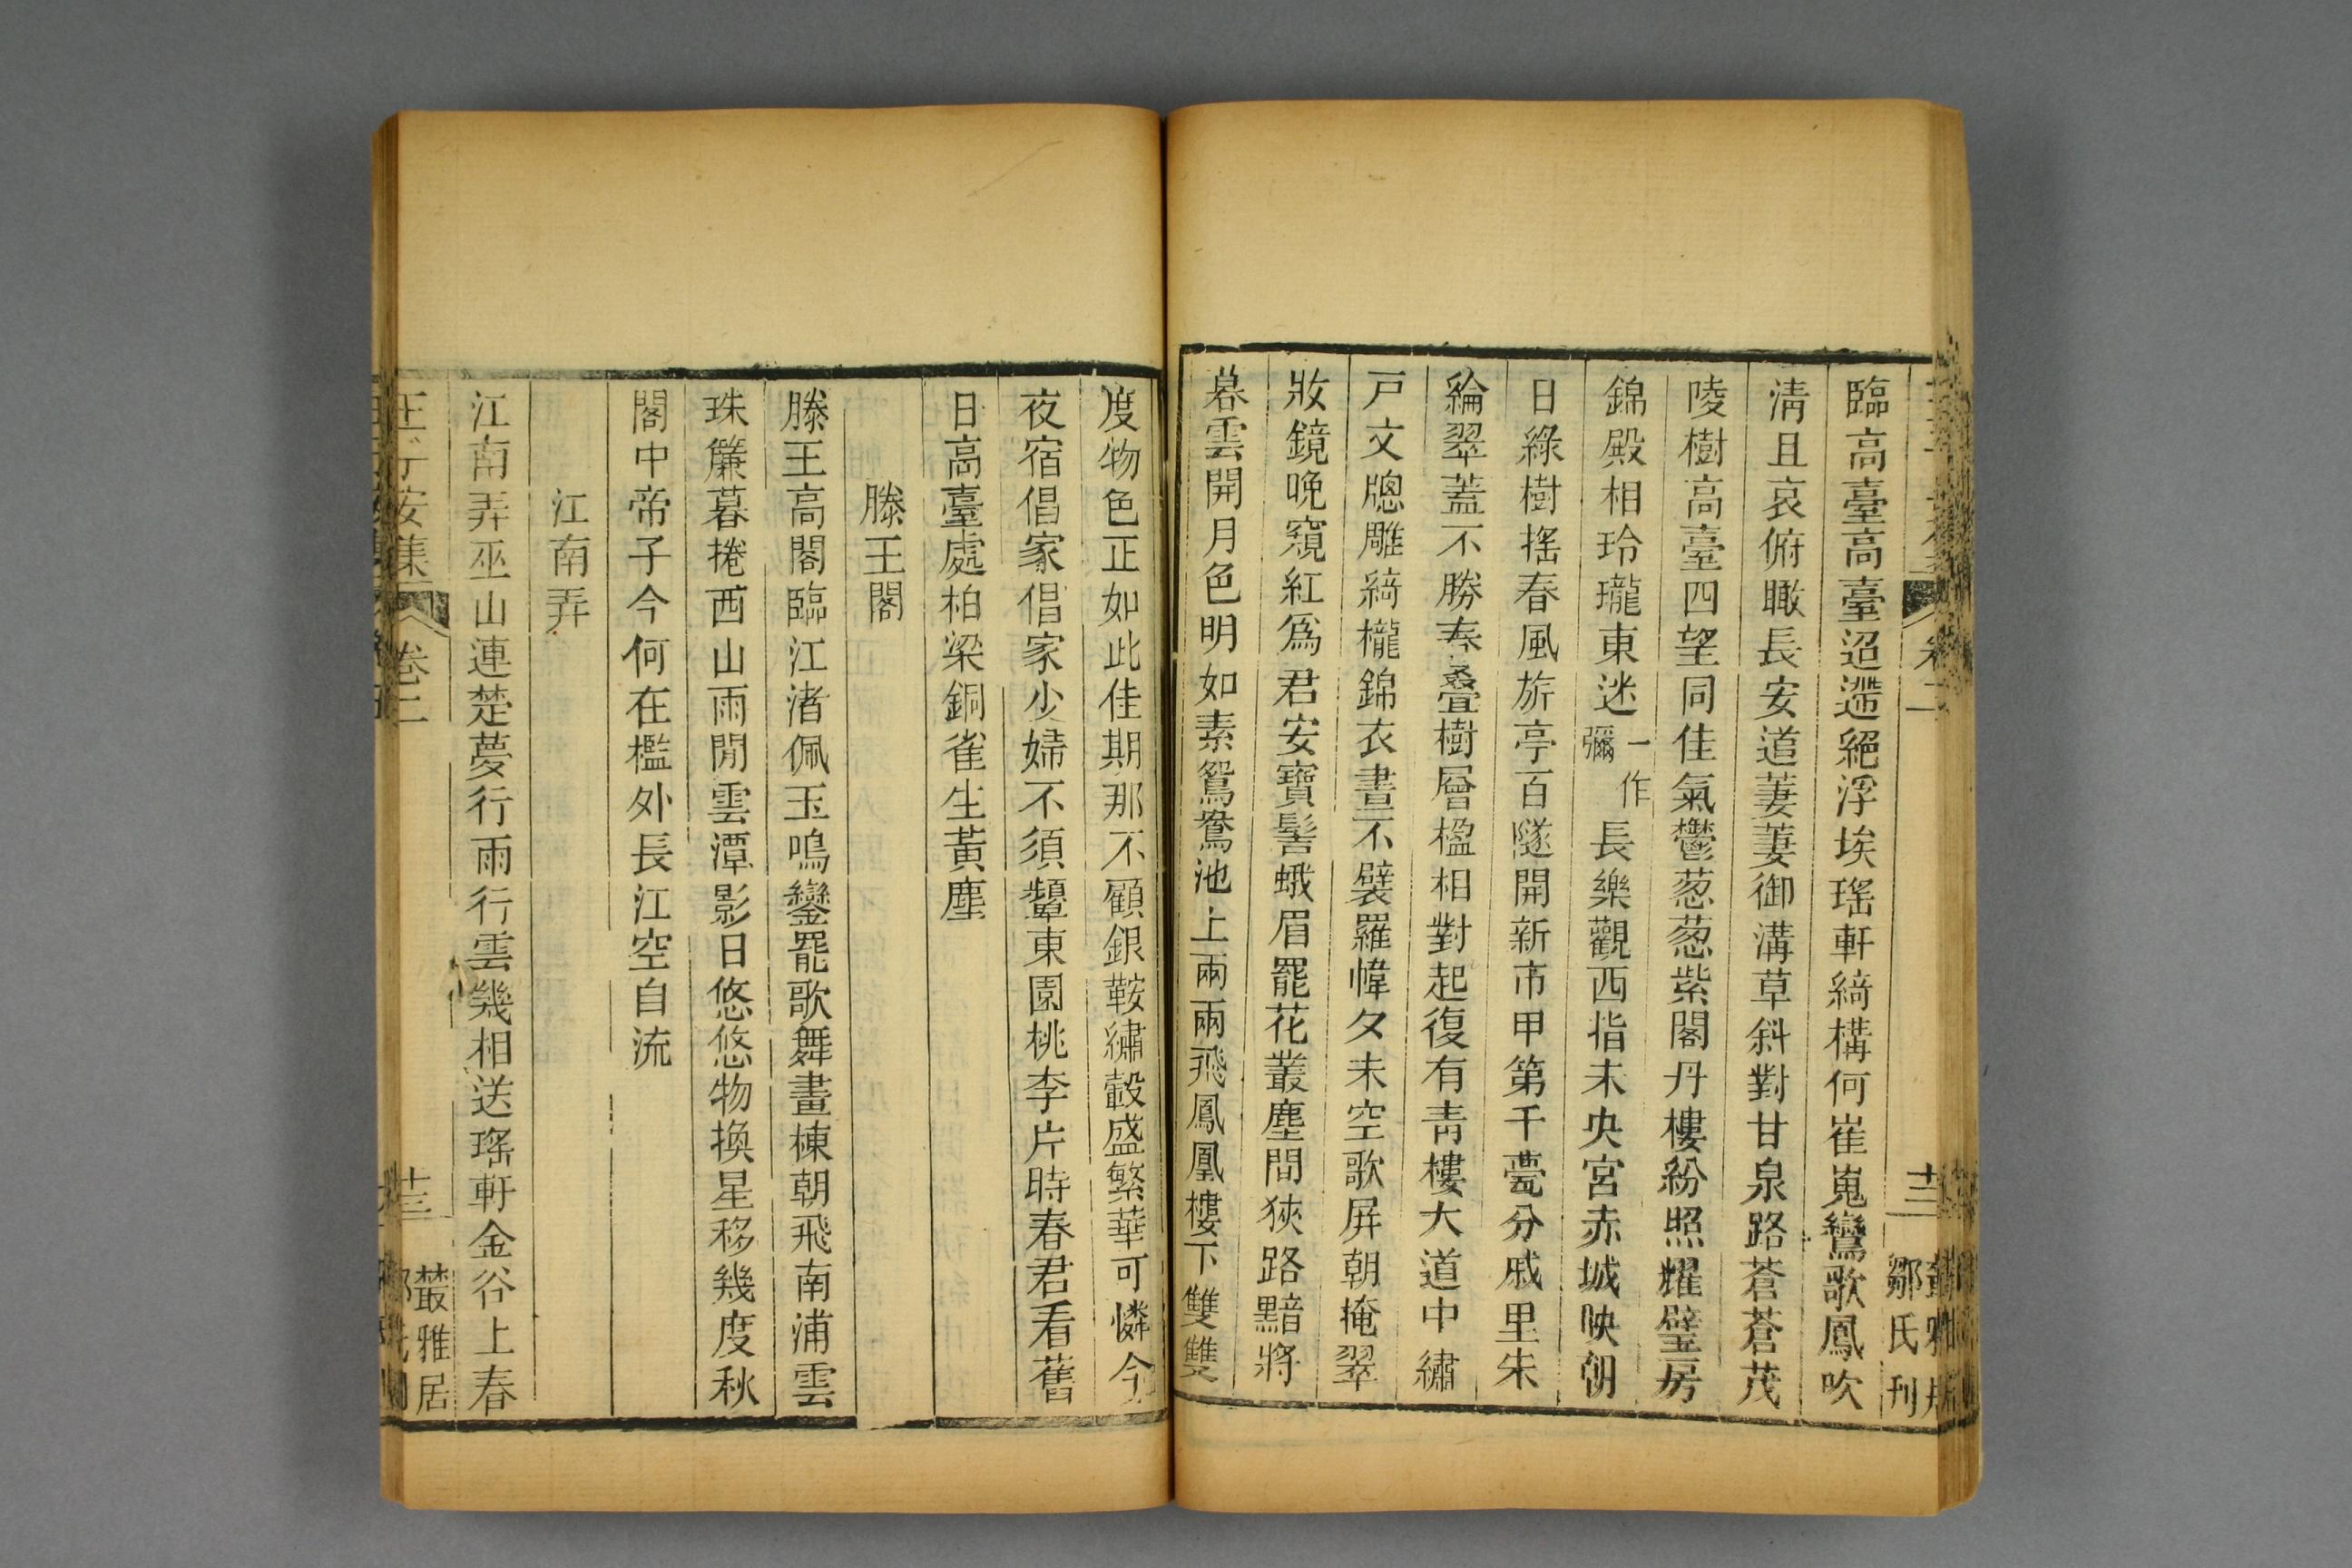 卷二
十二
鄒氏刊
臨高臺高臺迢遰絕浮埃瑤軒綺構何崔嵬鸞歌鳳吹
淸且哀俯瞰長安道萋萋御溝草斜對甘泉路蒼蒼茂
陵樹高臺四望同佳氣鬱葱葱紫閣丹樓紛照耀璧房
錦殿相玲瓏東迷一作彌長樂觀西指未央宮赤城映朝
日綠樹搖春風旂亭百隧開新市甲第千甍分戚里朱
綸翠蓋不勝春叠樹層楹相對起復有靑樓大道中繡
戸文牕雕綺櫳錦衣晝不襞羅幃夕未空歌屏朝掩翠
妝鏡晚窺紅爲君安寶髻蛾眉罷花叢塵間狹路黯將
暮雲開月色明如素鴛鴦池上兩兩飛鳳凰樓下雙雙
度物色正如此佳期那不顧銀鞍繡轂盛繁華可憐今
夜宿倡家倡家少婦不須顰東園桃李片時春君看舊
日高臺處柏梁銅雀生黃塵
滕王閣
滕王高閣臨江渚佩玉鳴鑾罷歌舞畫棟朝飛南浦雲
珠簾暮捲西山雨閒雲潭影日悠悠物換星移幾度秋
閣中帝子今何在檻外長江空自流
江南弄
江南弄巫山連楚夢行雨行雲幾相送瑤軒金谷上春
王子安集
卷二
十三
叢雅居